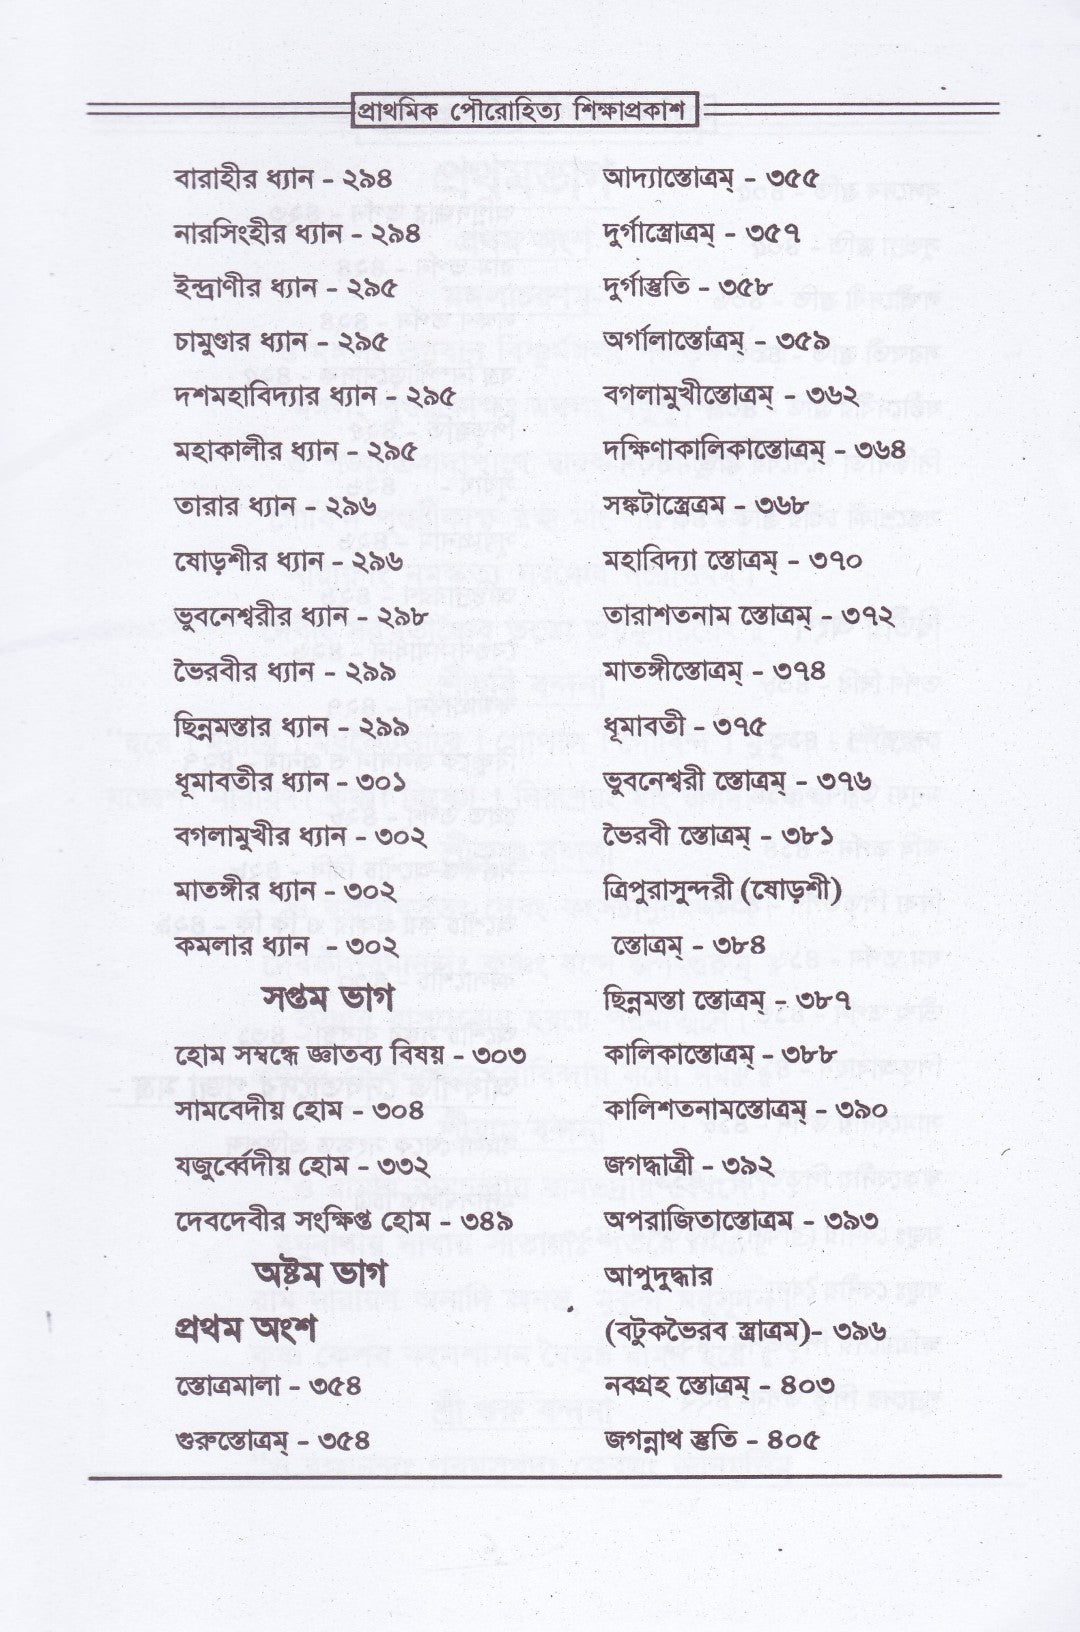 প্রাথমিক পৌরোহিত্য শিক্ষাপ্রকাশ
বারাহীর ধ্যান - ২৯৪
নারসিংহীর ধ্যান - ২৯৪
ইন্দ্রাণীর ধ্যান - ২৯৫
চামুণ্ডার ধ্যান - ২৯৫
দশমহাবিদ্যার ধ্যান - ২৯৫
মহাকালীর ধ্যান - ২৯৫
তারার ধ্যান - ২৯৬
ষোড়শীর ধ্যান - ২৯৬
ভুবনেশ্বরীর ধ্যান - ২৯৮
ভৈরবীর ধ্যান - ২৯৯
ছিন্নমস্তার ধ্যান - ২৯৯
ধূমাবতীর ধ্যান - ৩০১
বগলামুখীর ধ্যান - ৩০২
মাতঙ্গীর ধ্যান - ৩০২
কমলার ধ্যান - ৩০২
সপ্তম ভাগ
হোম সম্বন্ধে জ্ঞাতব্য বিষয় - ৩০৩
সামবেদীয় হোম - ৩০৪
যজুর্ব্বেদীয় হোম - ৩৩২
দেবদেবীর সংক্ষিপ্ত হোম - ৩৪৯
অষ্টম ভাগ
প্রথম অংশ
স্তোত্রমালা - ৩৫৪
গুরুস্তোত্রম্ - ৩৫৪
আদ্যাস্তোত্রম্ - ৩৫৫
দুর্গাস্ত্রোত্রম্ - ৩৫৭
দুর্গাস্তুতি - ৩৫৮
অর্গালাস্তোত্রম্ - ৩৫৯
বগলামুখীস্তোত্রম্ - ৩৬২
দক্ষিণাকালিকাস্তোত্রম্ - ৩৬৪
সঙ্কটাস্ত্রেত্রম - ৩৬৮
মহাবিদ্যা স্তোত্রম্ - ৩৭০
তারাশতনাম স্তোত্রম্ - ৩৭২
মাতঙ্গীস্তোত্রম্ - ৩৭৪
ধূমাবতী - ৩৭৫
ভুবনেশ্বরী স্তোত্রম্ - ৩৭৬
ভৈরবী স্তোত্রম্ - ৩৮১
ত্রিপুরাসুন্দরী (ষোড়শী)
স্তোত্রম্ - ৩৮৪
ছিন্নমস্তা স্তোত্রম্ - ৩৮৭
কালিকাস্তোত্রম্ - ৩৮৮
কালিশতনামস্তোত্রম্ - ৩৯০
জগদ্ধাত্রী - ৩৯২
অপরাজিতাস্তোত্রম - ৩৯৩
আপুদুদ্ধার
(বটুকভৈরব স্ত্রাত্রম)- ৩৯৬
নবগ্রহ স্তোত্রম্ - ৪০৩
জগন্নাথ স্তুতি - ৪০৫